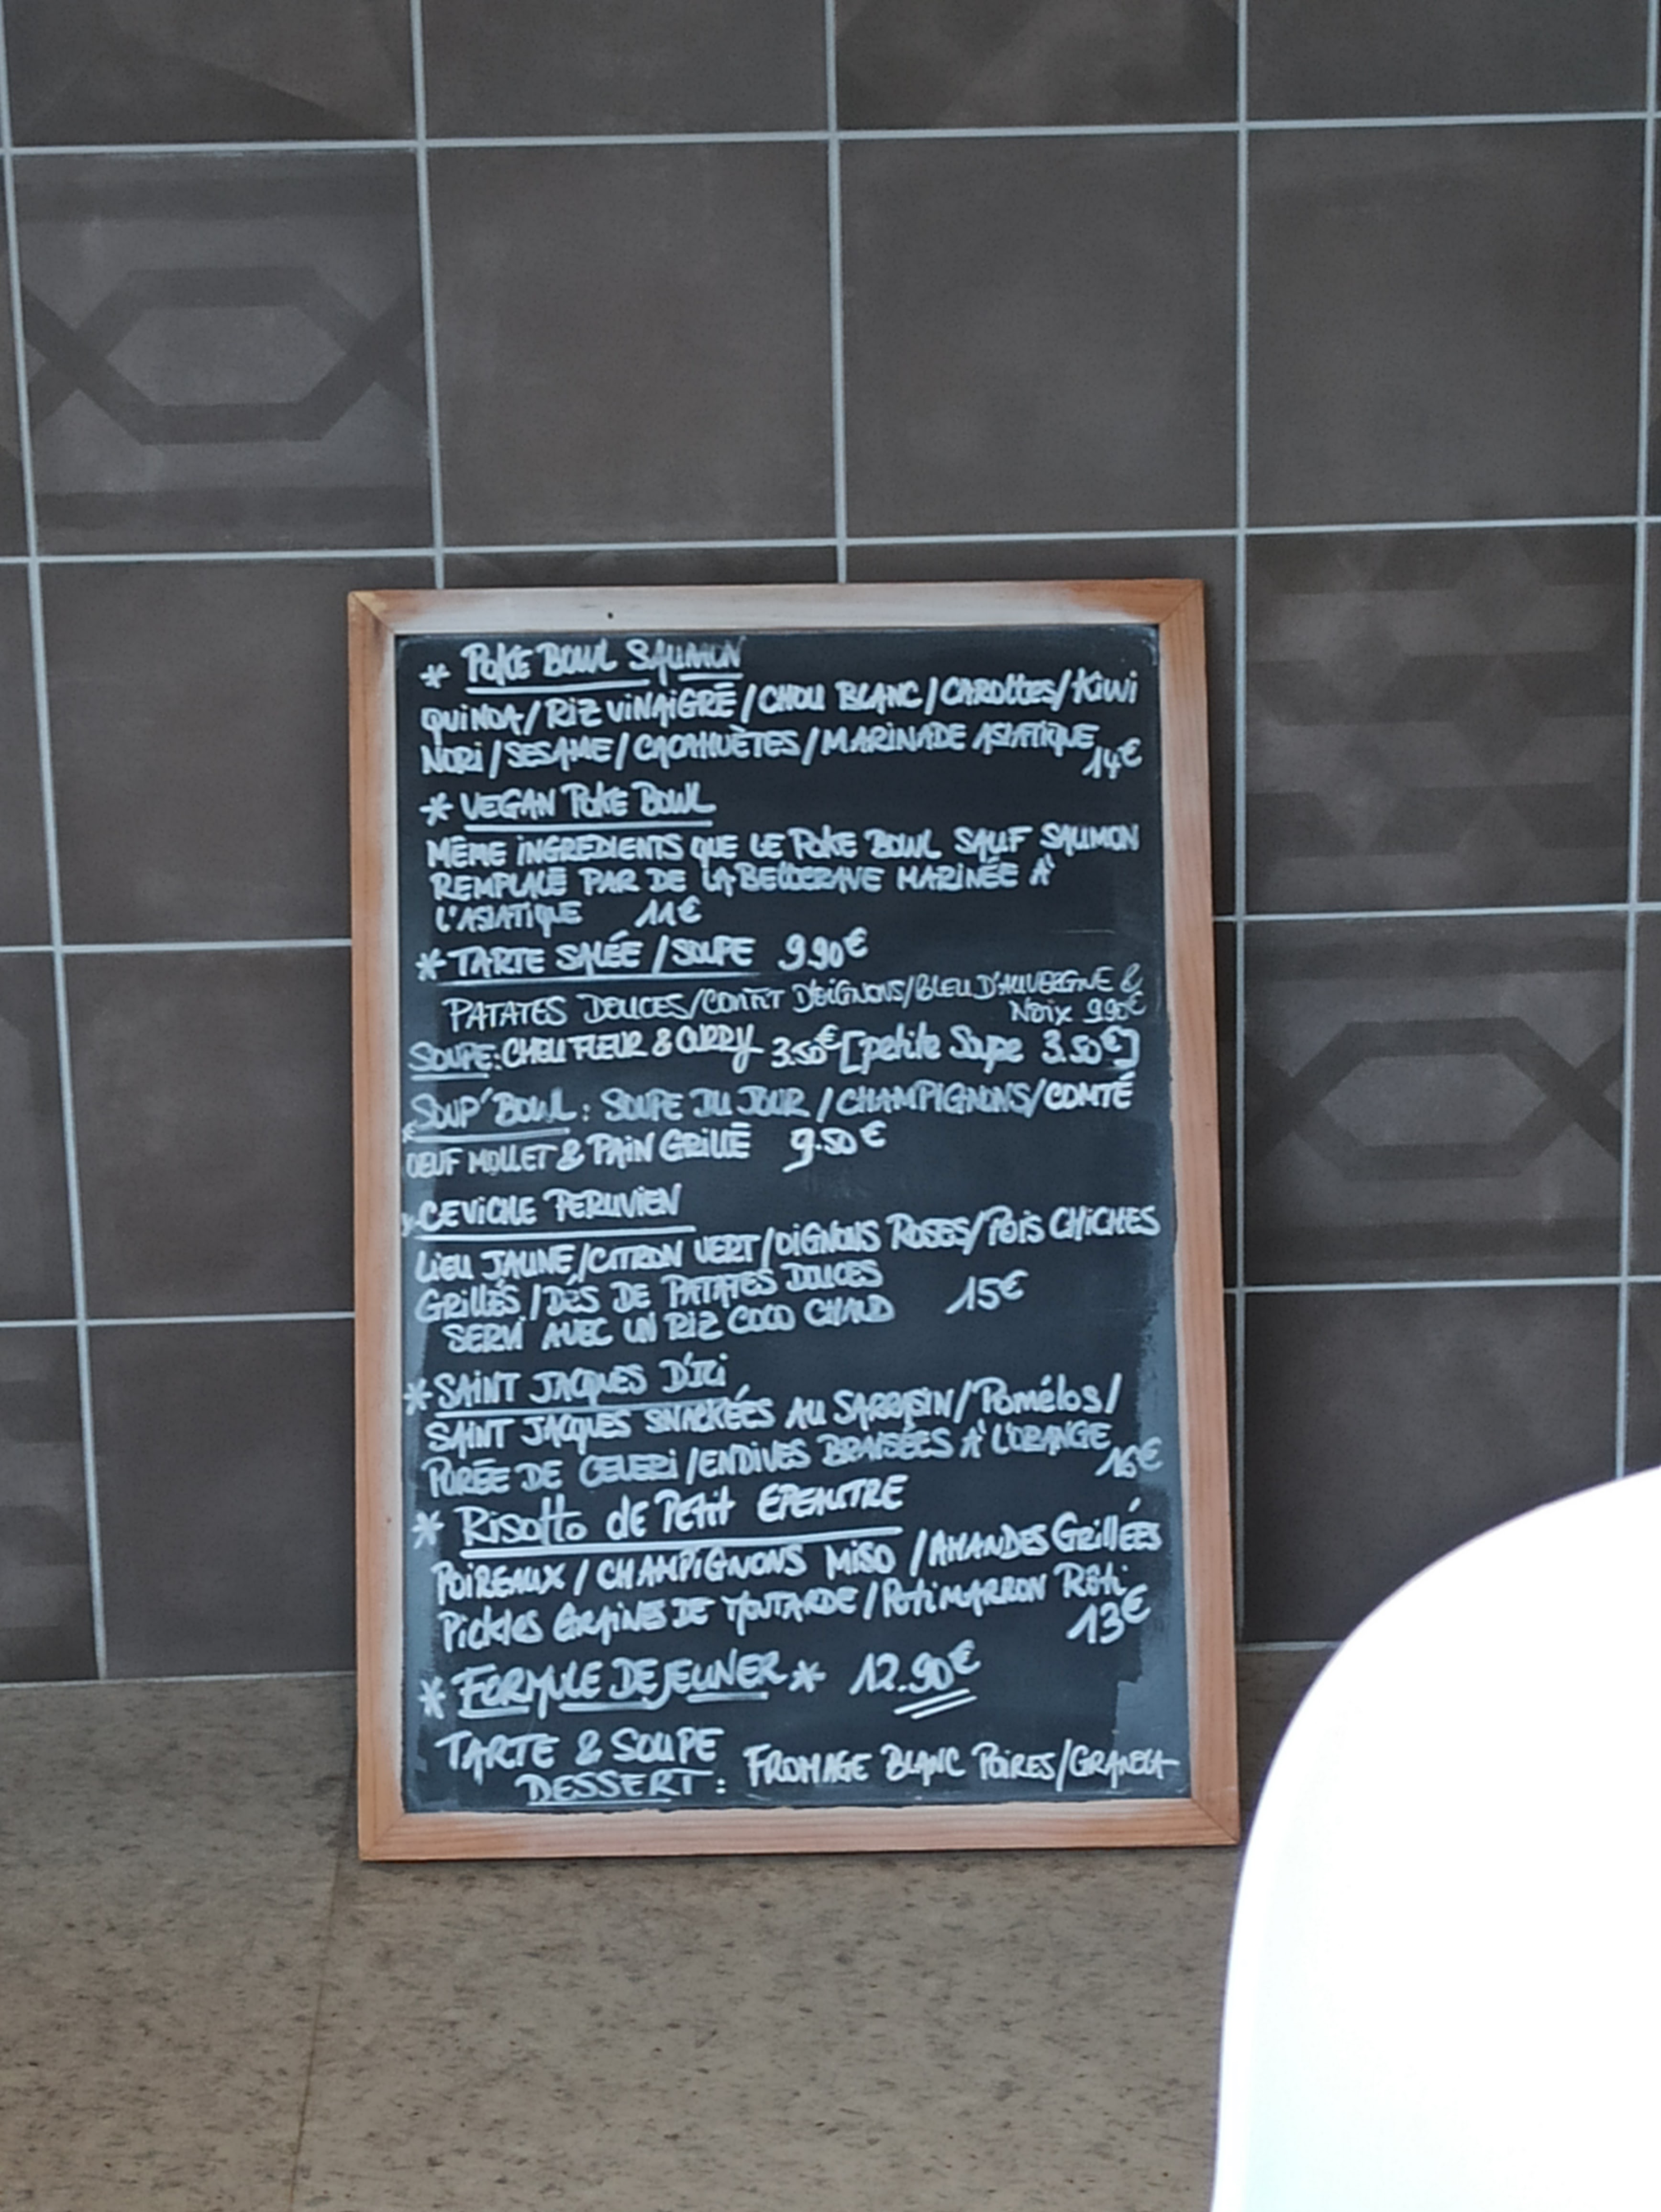 * POKE BOWL SAUMON
QUINOA/RIZ VINAIGRÉ/CHOU BLANC/CAROTTES/KIWI
NORI/SESAME/CACAHUÈTES/MARINADE ASIATIQUE 14€
* VEGAN POKE BOWL
MÊME INGREDIENTS QUE LE POKE BOWL SAUF SAUMON
REMPLACÉ PAR DE LA BETTERAVE MARINÉE À
L'ASIATIQUE 11€
* TARTE SALÉE/SOUPE 9.90€
PATATES DOUCES/CONFIT D'OIGNONS/BLEU D'AUVERGNE &
NOIX 9.90€
SOUPE: CHOU FLEUR & CURRY 3.50€ [petite Soupe 3.50€]
* SOUP'BOWL: SOUPE DU JOUR/CHAMPIGNONS/COMTÉ
OEUF MOLLET & PAIN GRILLÉ 9.50€
* CEVICHE PERUVIEN
LIEU JAUNE/CITRON VERT/OIGNONS ROSES/POIS CHICHES
GRILLÉS/DÉS DE PATATES DOUCES
SERVI AVEC UN RIZ COCO CHAUD 15€
* SAINT JACQUES D'ICI
SAINT JACQUES SNACKÉES AU SARRASIN/Pomélos/
PURÉE DE CELERI/ENDIVES BRAISÉES À L'ORANGE 16€
* Risotto de PETIT EPEAUTRE
POIREAUX/CHAMPIGNONS MISO/AMANDES GRILLÉES
Pickles GRAINES DE MOUTARDE/POTIMARRON Rôti
13€
* FORMULE DEJEUNER * 12.90€
TARTE & SOUPE
DESSERT: FROMAGE BLANC POIRES/GRANOLA